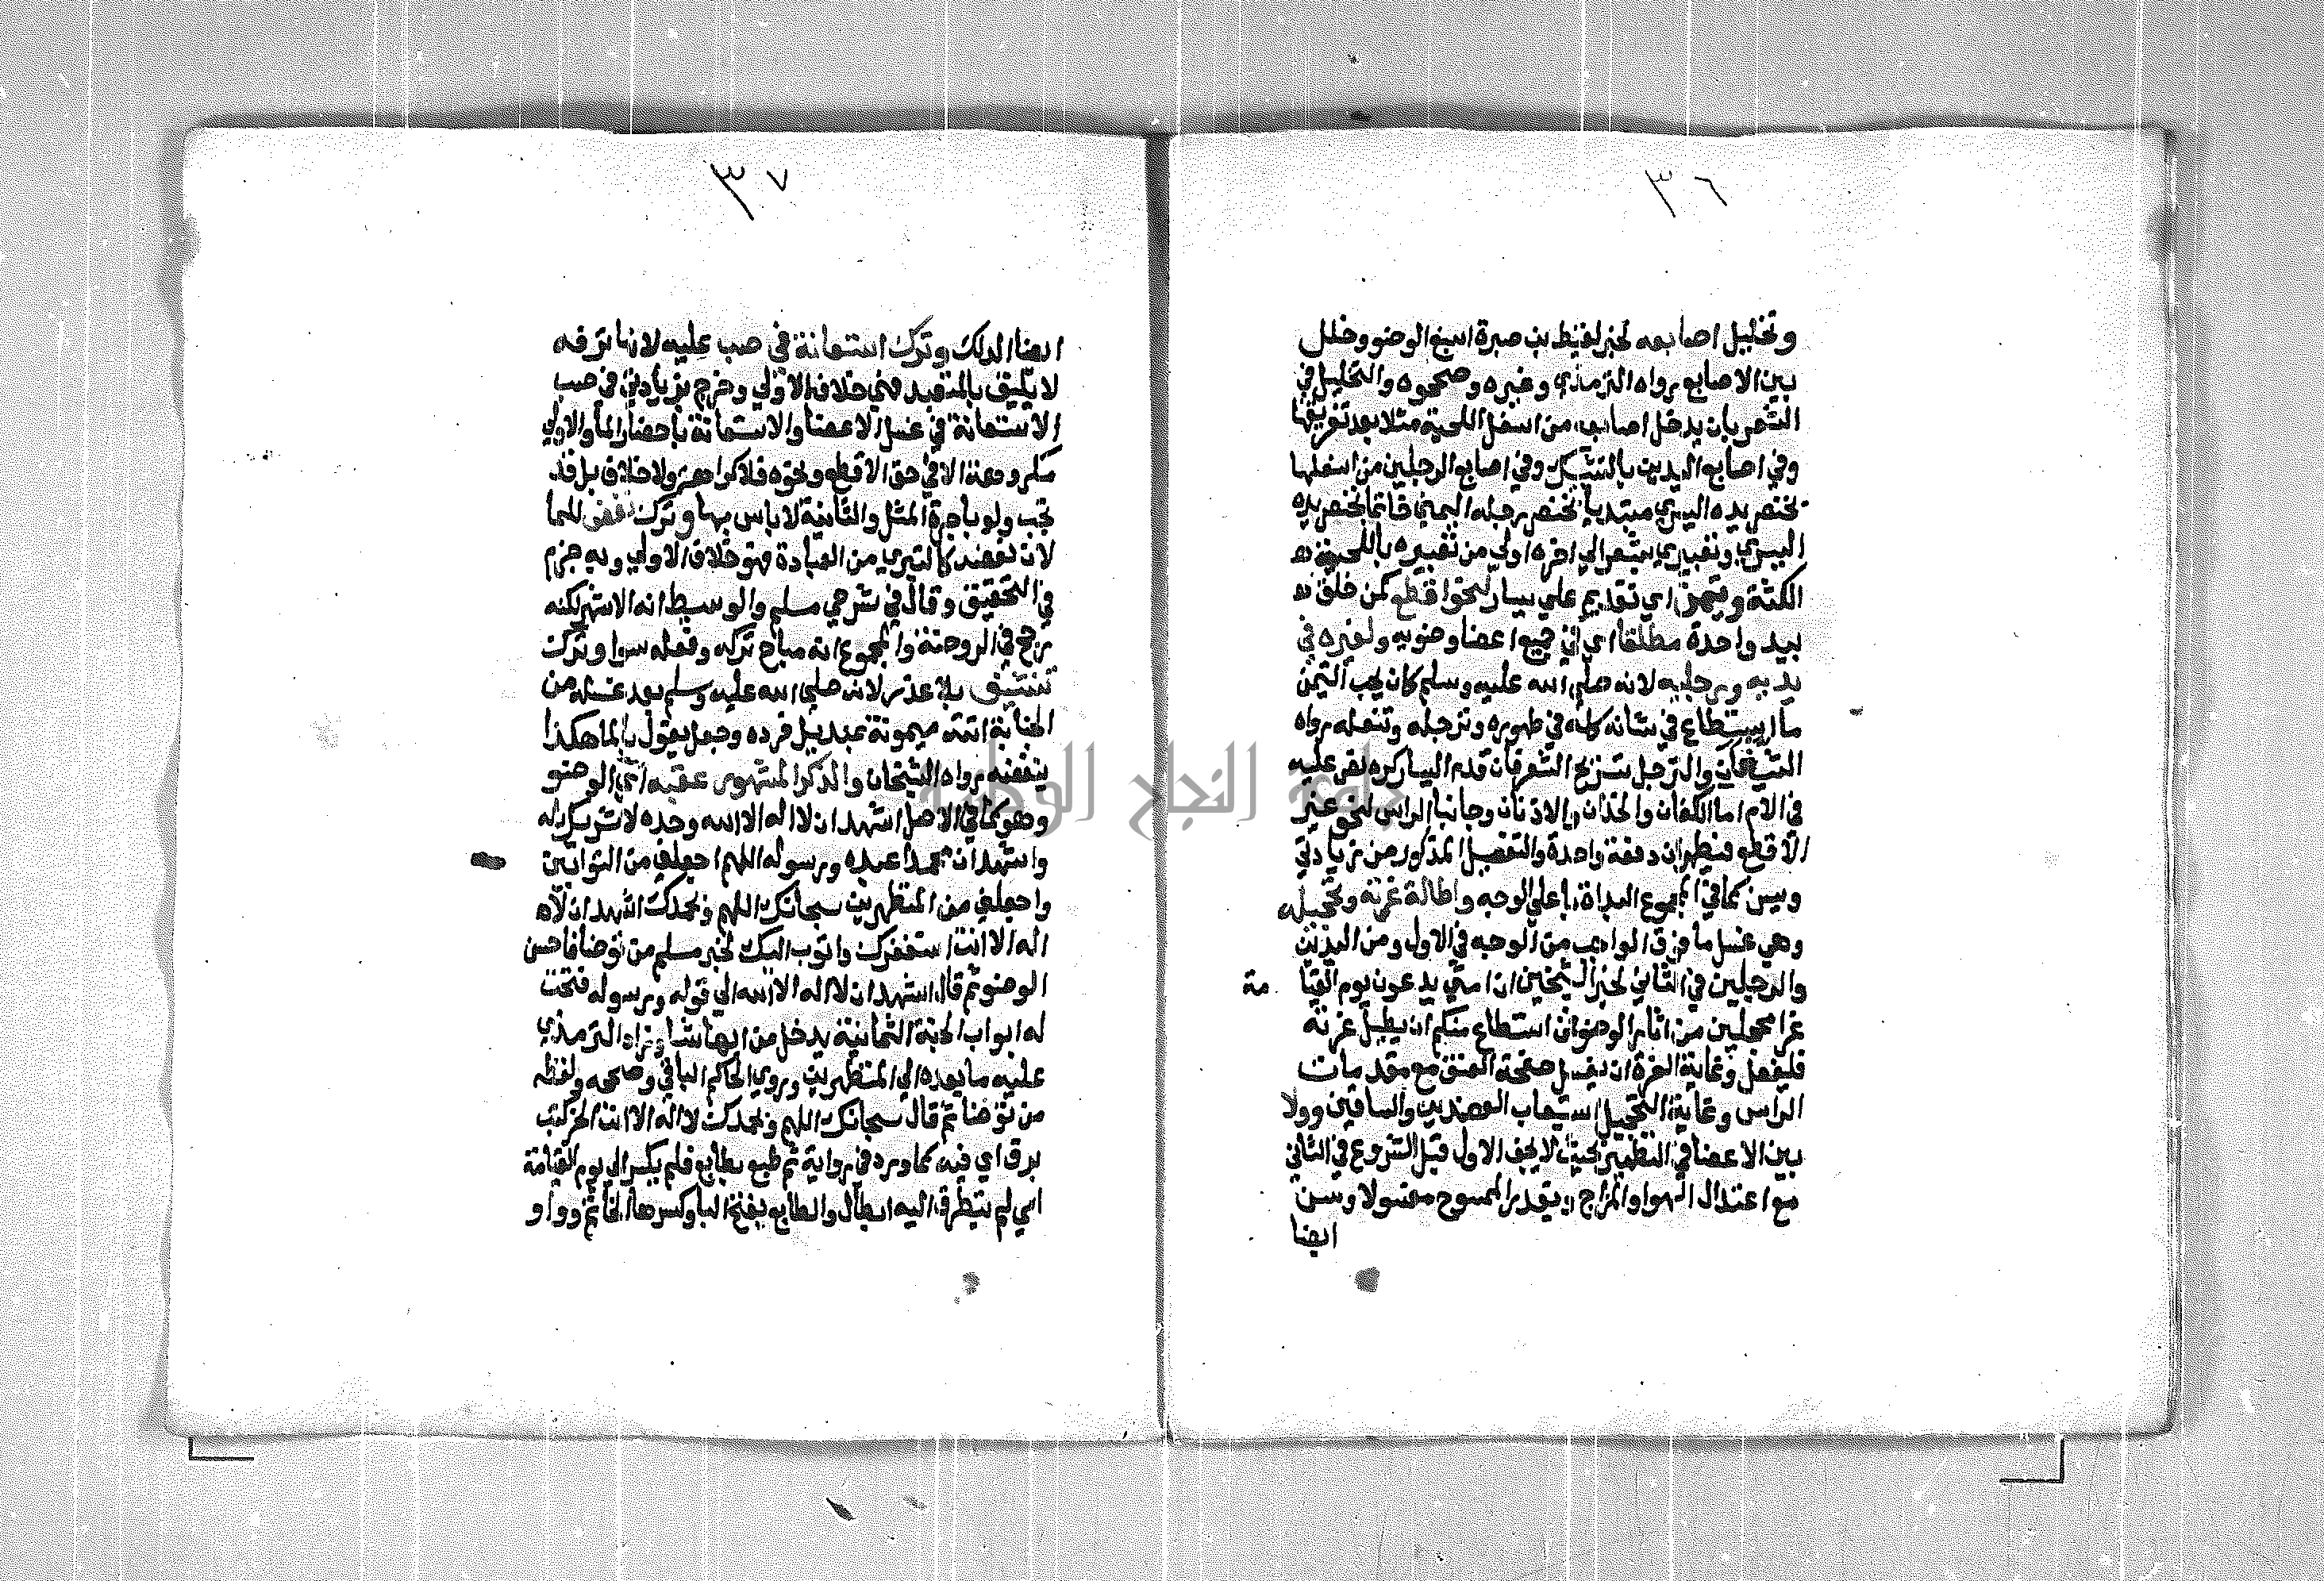 ٣٦
وتخليل اصابعه لخبر لقيط بن صبرة اسبغ الوضو وخلل
بين الاصابع رواه الترمذي وغيره وصححوه والتخليل في
الشعر بان يدخل اصابعه من اسفل اللحية مثلا بعد تفريقها
وفي اصابع اليدين بالتشبيك وفي اصابع الرجلين من اسفلها
بخنصر يده اليسري مبتديا بخنصر رجله اليمني خاتما بخنصر
اليسري وتعبيري بشعر الي اخره اولي من تعبيره باللحية
الكثة وتيمن اي تقديم علي يسار لنحو اقطع كمن خلق
بيد واحدة مطلقا اي في جميع اعضا وضويه ولغيره في
يديه ورجليه لانه صلي الله عليه وسلم كان يحب التيمن
ما استطاع في شانه كله في طهوره وترجله وتنعله رواه
الشيخان والترجل تسريح الشعر فان قدم اليسار كره نص عليه
في الام اما الكفان والخدان والاذنان وجانبا الراس لنحو غير
الاقطع فيطهران دفعة واحدة والتفصيل المذكور من زيادتي
وسن كما في المجموع البداة باعلي الوجه واطالة غرته وتحجيله
وهي غسل ما فوق الواجب من الوجه في الاول ومن اليدين
والرجلين في الثاني لخبر الشيخين ان امتي يدعون يوم القيا مة
غرا محجلين من اثار الوضو فمن استطاع منكم ان يطيل غرته
فليفعل وغاية الغرة ان يغسل صفحة العنق مع مقدمات
الراس وغاية التحجيل استيعاب العضدين والساقين وولا
بين الاعضا في التطهير بحيث لا يجف الاول قبل الشروع في الثاني
مع اعتدال الهوا والمزاج ويقدر الممسوح مغسولا وسن
ايضا
٣٧
ايضا الدلك وترك استعانة في صب عليه لانها ترفه
لا يليق بالمتعبد فهي خلاف الاولي وخرج بزيادتي في صب
الاستعانة في غسل الاعضا والاستعانة باحضار الما والاولي
مكروهة الا في حق الاقطع ونحوه فلا كراهة ولا خلاف بل قد
تجب ولو باجرة المثل والثانية لا باس بها وترك نفض للما
لان نفضه كالتبري من العبادة فهو خلاف الاولي وبه جزم
في التحقيق وقال في شرحي مسلم والوسيط انه الاشهر لكنه
رجح في الروضة والمجموع انه مباح تركه وفعله سوا وترك
تنشيف بلا عذر لانه صلي الله عليه وسلم بعد غسله من
الجنابة اتته ميمونة بمنديل فرده وجعل يقول بالما هكذا
ينفضه رواه الشيخان والذكر المشهور عقبه اي الوضو
وهو كما في الاصل اشهد ان لا اله الا الله وحده لا شريك له
واشهد ان محمدا عبده ورسوله اللهم اجعلني من التوابين
واجعلني من المتطهرين سبحانك اللهم وبحمدك اشهد ان لا
اله الا انت استغفرك واتوب اليك لخبر مسلم من توضا فاحسن
الوضو ثم قال اشهد ان لا اله الا الله الي قوله ورسوله فتحت
له ابواب الجنة الثمانية يدخل من ايها شا وزاد الترمذي
عليه ما بعده الي المتطهرين وروي الحاكم الباقي وصححه ولفظه
من توضا ثم قال سبحانك اللهم وبحمدك لا اله الا انت الخ كتب
برق اي فيه كما ورد في رواية ثم طبع بطابع فلم يكسر الي يوم القيامة
اي لم يتطرق اليه ابطال والطابع بفتح البا وكسرها الخاتم
جامعة النجاح الوطنية